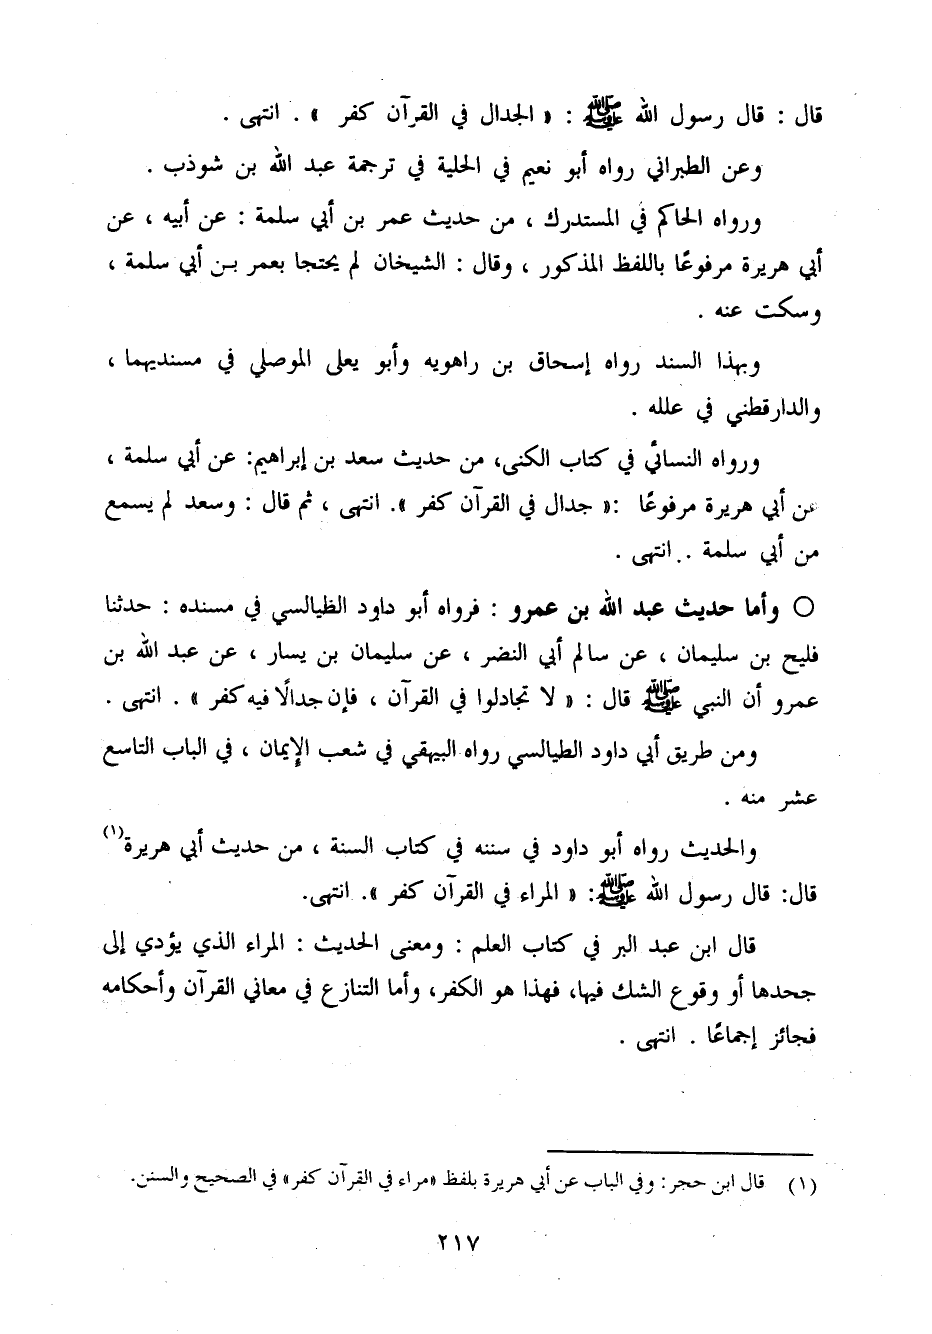 قال : قال رسول الله ﷺ : « الجدال في القرآن كفر » . انتهى .
وعن الطبراني رواه أبو نعيم في الحلية في ترجمة عبد الله بن شوذب .
ورواه الحاكم في المستدرك ، من حديث عمر بن أبي سلمة : عن أبيه ، عن
أبي هريرة مرفوعًا باللفظ المذكور ، وقال : الشيخان لم يحتجا بعمر بـن أبي سلمة ،
وسكت عنه .
وبهذا السند رواه إسحاق بن راهويه وأبو يعلى الموصلي في مسنديهما ،
والدارقطني في علله .
ورواه النسائي في كتاب الكنى، من حديث سعد بن إبراهيم: عن أبي سلمة ،
عن أبي هريرة مرفوعًا :« جدال في القرآن كفر ». انتهى ، ثم قال : وسعد لم يسمع
من أبي سلمة .. انتهى .
○ وأما حديث عبد الله بن عمرو : فرواه أبو داود الظيالسي في مسنده : حدثنا
فليح بن سليمان ، عن سالم أبي النضر ، عن سليمان بن يسار ، عن عبد الله بن
عمرو أن النبي ﷺ قال : « لا تجادلوا في القرآن ، فإن جدالًا فيه كفر » . انتهى .
ومن طريق أبي داود الطيالسي رواه البيهقي في شعب الإيمان ، في الباب التاسع
عشر منه .
والحديث رواه أبو داود في سننه في كتاب السنة ، من حديث أبي هريرة(١)
قال: قال رسول الله ﷺ: « المراء في القرآن كفر ». انتهى.
قال ابن عبد البر في كتاب العلم : ومعنى الحديث : المراء الذي يؤدي إلى
جحدها أو وقوع الشك فيها، فهذا هو الكفر، وأما التنازع في معاني القرآن وأحكامه
فجائز إجماعًا . انتهى .
(١) قال ابن حجر: وفي الباب عن أبي هريرة بلفظ «مراء في القرآن كفر» في الصحيح والسنن.
٢١٧